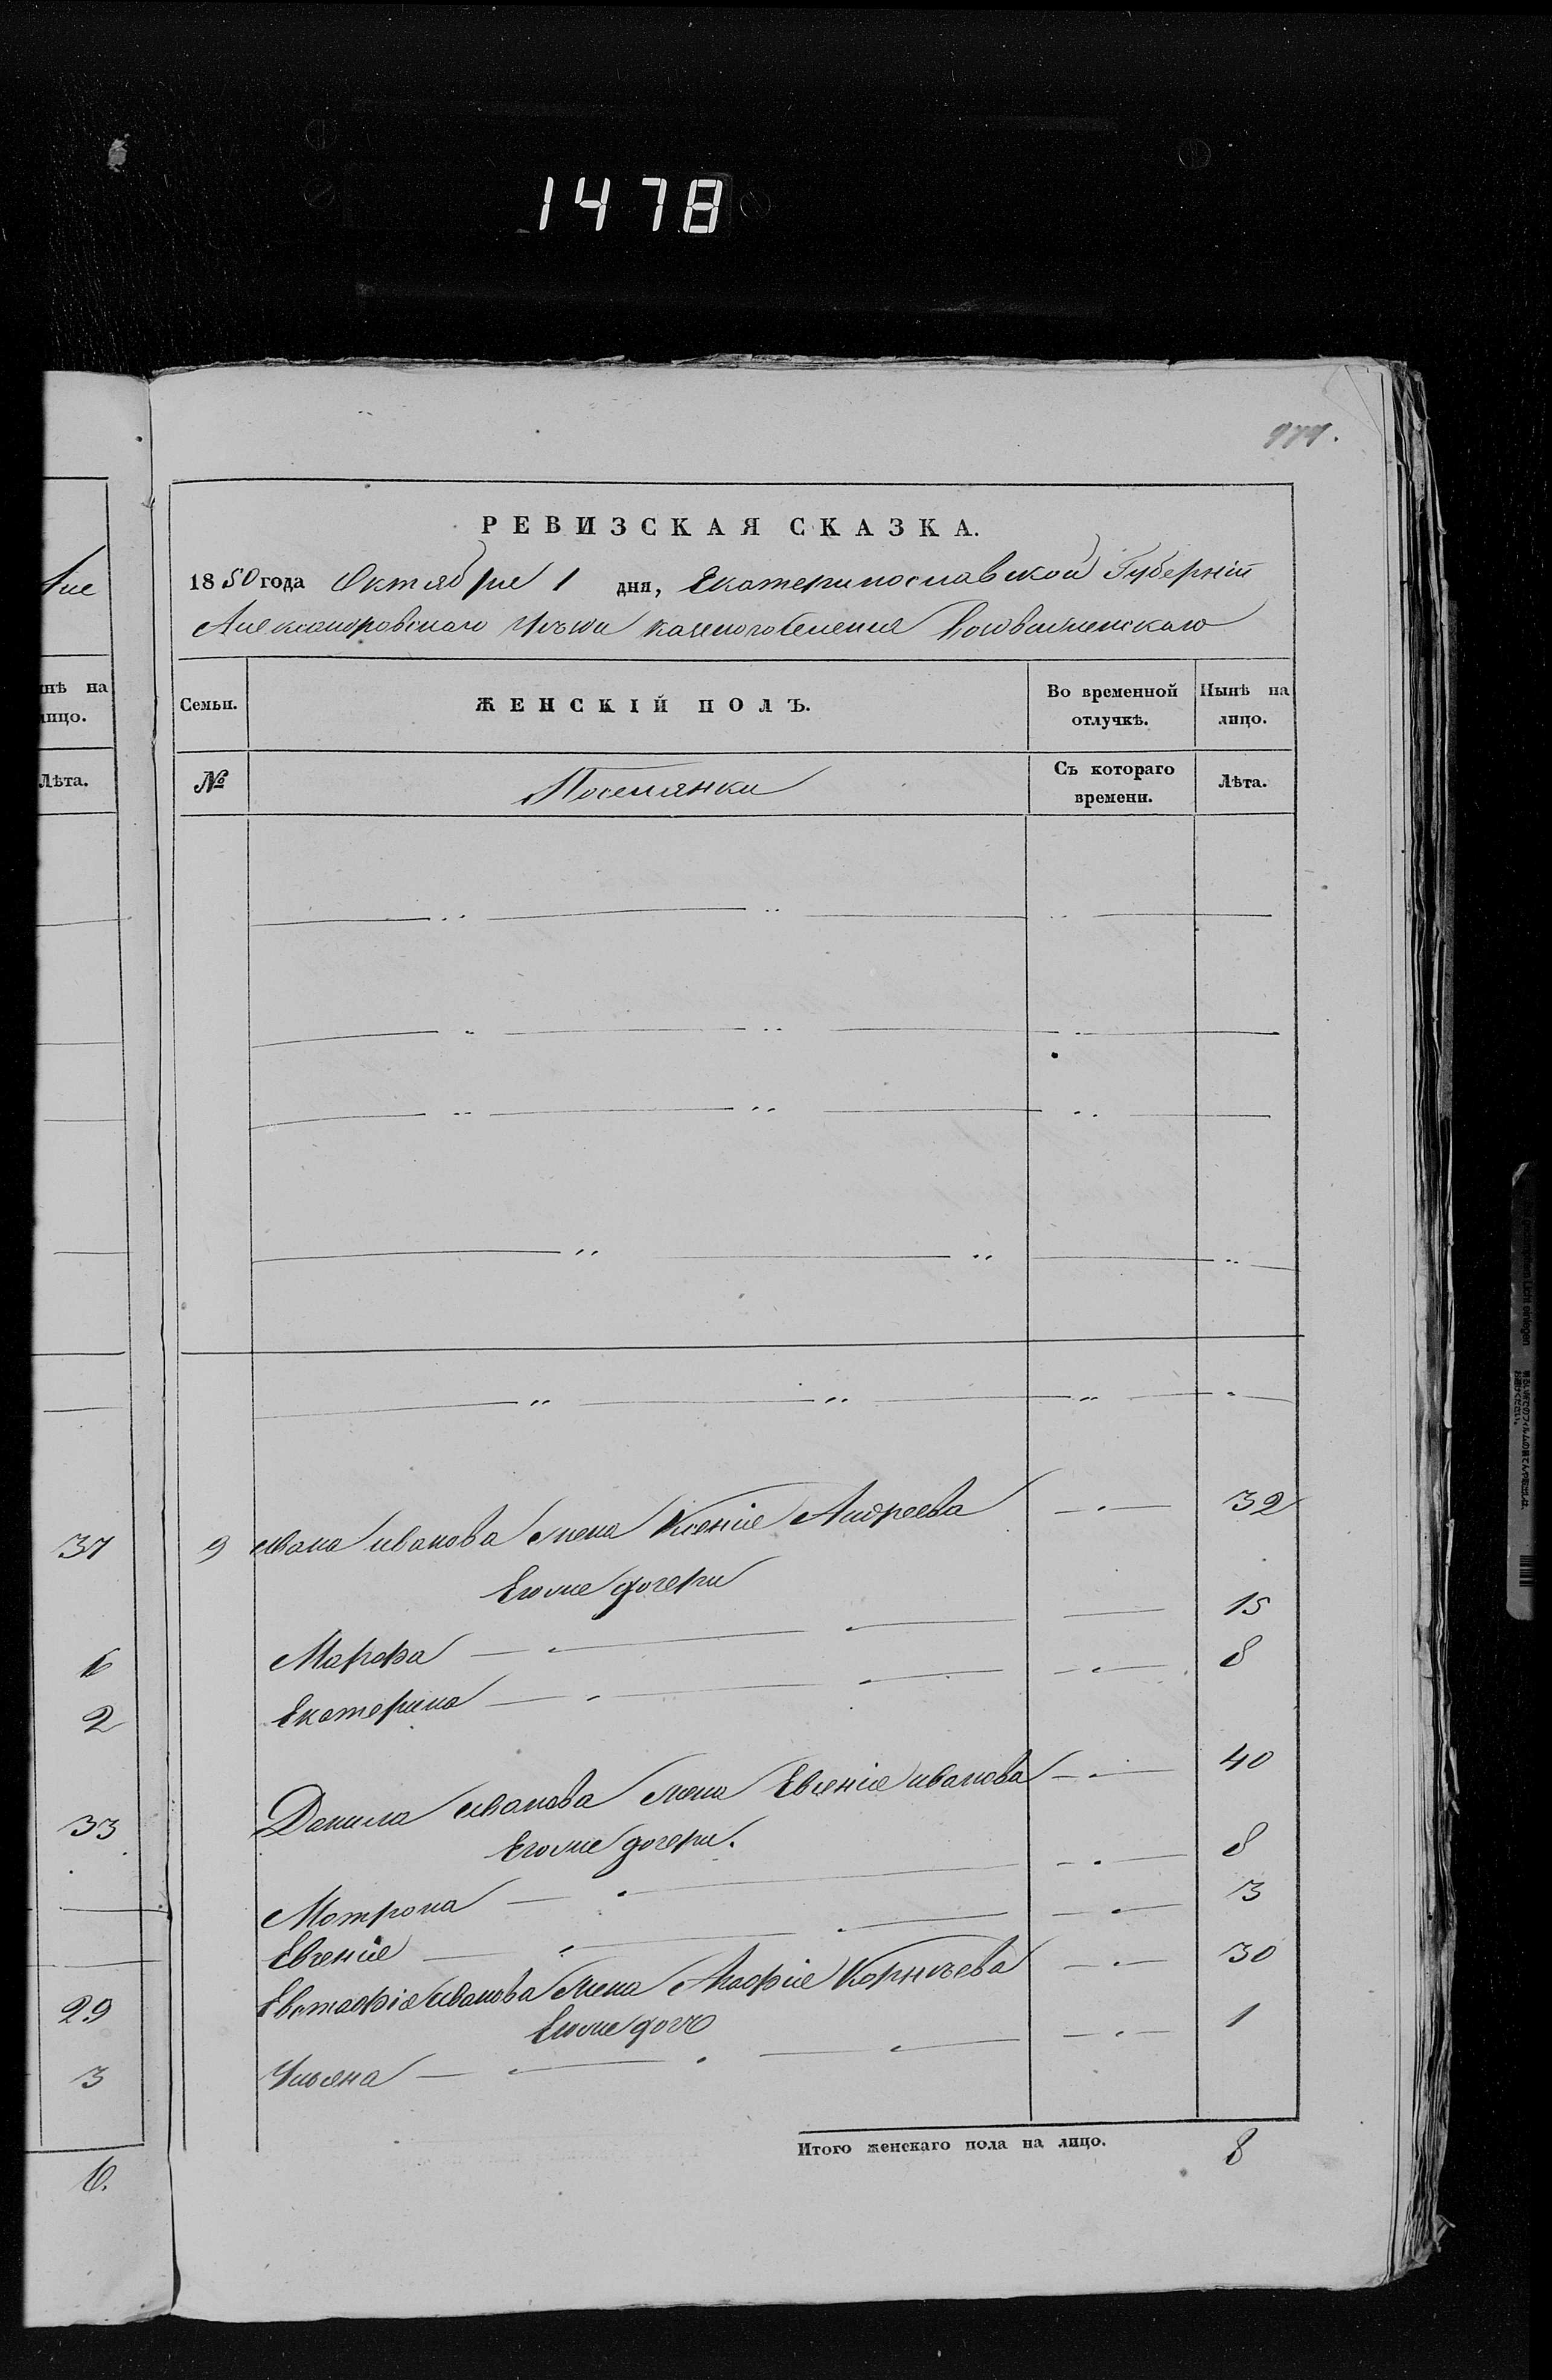 1478
977.
РЕВИЗСКАЯ СКАЗКА.
1850 года Октября 1 дня, Екатеринославской Губерніи
Александровскаго Уѣзда казеннаго селенія Воздвиженскаго
Семьи.
ЖЕНСКІЙ ПОЛЪ.
Во временной отлучкѣ.
Нынѣ на лицо.
№
Поселянки
Съ котораго времени.
Лѣта.
9 Ивана Иванова жена Ксенія Андреева 32
Егоже дочери
Марфа 15
Екатерина 8
Данила Иванова жена Евгенія Иванова 40
Егоже дочери.
Мотрона 8
Евгенія 3
Евстафія Иванова жена Агафія Корнѣева 30
Егоже дочь
Ульяна 1
Итого женскаго пола на лицо. 8
нѣ на
лицо.
Лѣта.
37
6
2
33
29
3
6.